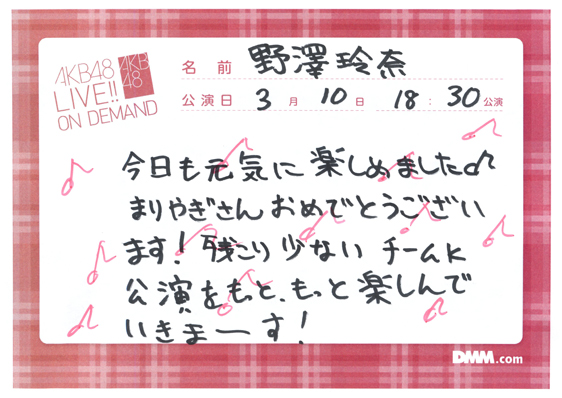 AKB48
LIVE!!
ON DEMAND
AKB
48
名 前 野澤玲奈
公演日 3 月 10 日 18 : 30 公演
今日も元気に楽しめました♪
まりやぎさんおめでとうござい
ます! 残こり少ない チームK
公演をもっと、もっと楽しんで
いきまーす!
DMM.com